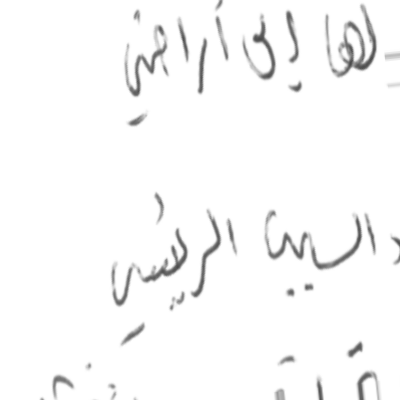 لها إلى أراضي
السبب الرئيسي